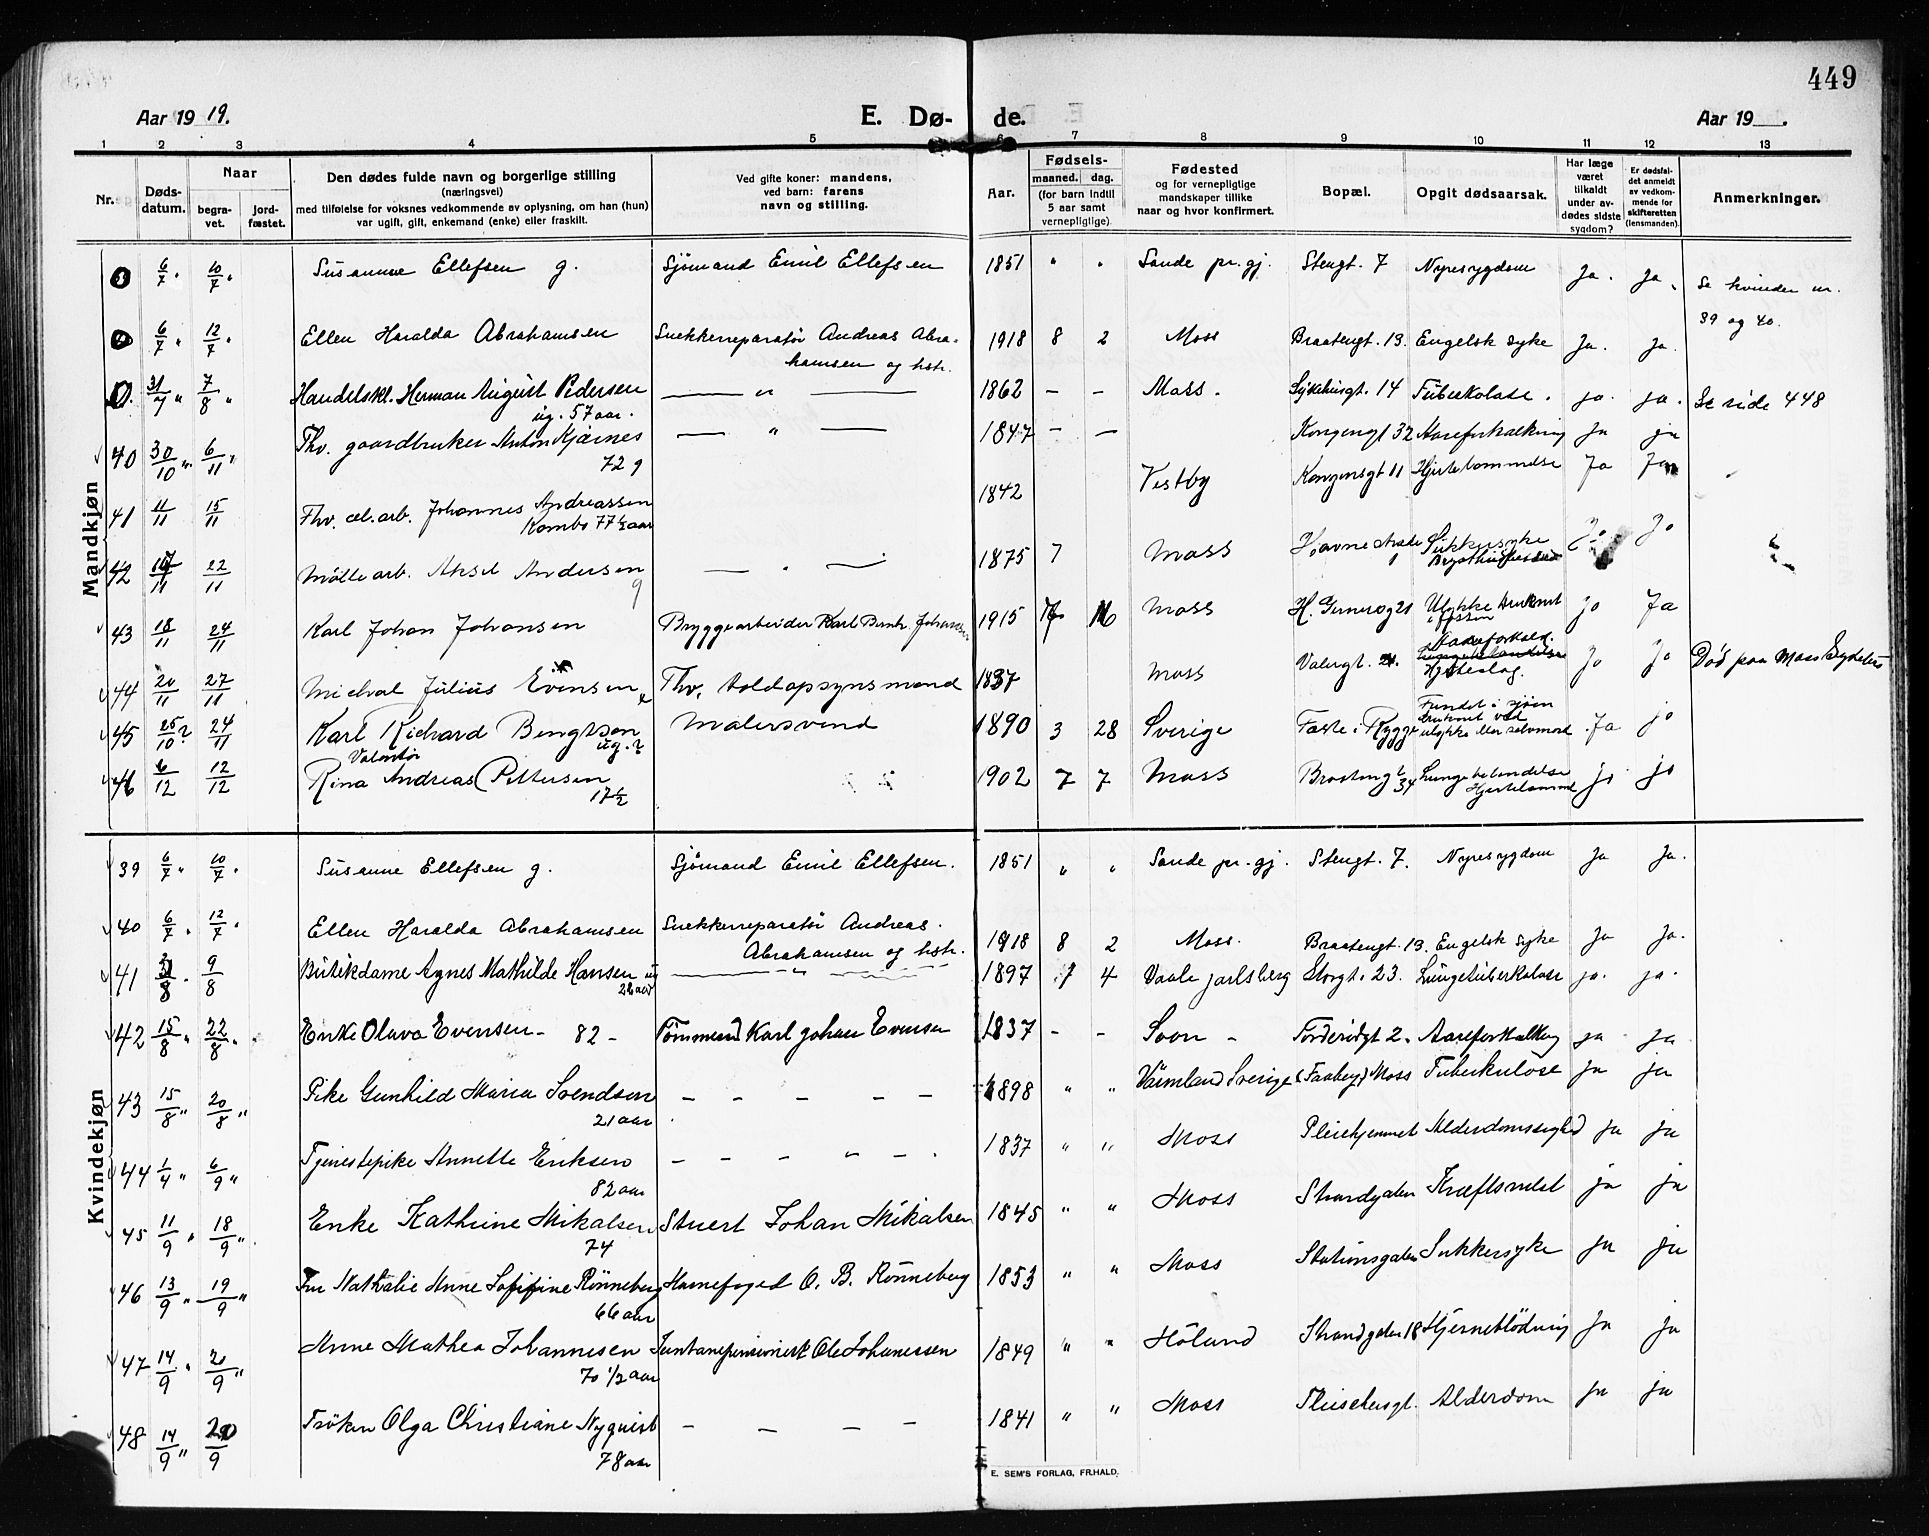 449
Aar 1919.
E. Dø-
de.
Aar 19 .
1 2 3 4 5 6 7 8 9 10 11 12 13
Nr.
Døds-
datum.
Naar
begra-
vet.
jord-
fæstet.
Den dødes fulde navn og borgerlige stilling
(næringsvei)
med tilføielse for voksnes vedkommende av oplysning, om han (hun)
var ugift, gift, enkemand (enke) eller fraskilt.
Ved gifte koner: mandens,
ved barn: farens
navn og stilling.
Aar.
Fødsels-
maaned. dag.
(for barn indtil
5 aar samt
vernepligtige).
Fødested
og for vernepligtige
mandskaper tillike
naar og hvor konfirmert.
Bopæl.
Opgit dødsaarsak.
Har læge
været
tilkaldt
under av-
dødes sidste
sygdom?
Er dødsfal-
det anmeldt
av vedkom-
mende for
skifteretten
(lensmanden).
Anmerkninger.
Mandkjøn
6/7 " 10/7 " Susanne Ellefsen g. Sjømand Emil Ellefsen 1851 " " Sande pr. gj. Stengt. 7 Nyresygdom Ja. Ja. Se kvinder nr.
39 og 40.
6/7 " 12/7 " Ellen Haralda Abrahamsen Snekkerreparatør Andreas Abra-
hamsen og hstr. 1918 8 2 Moss Braatengt. 13. Engelsk syke Ja. Ja.
31/7 " 7/8 " Handelskl. Herman August Pedersen — " — 1862 – – Moss. Sykehusgt. 14 Tuberkolose. ja. ja. Se side 448
ug. 57 aar.
40 30/10 " 6/11 " Fhv. gaardbruker Anton Kjærnes — " — 1847 – – Kongengt 32 Aareforkalkning Ja ja
72 g
41 11/11 15/11 Fhv. cel. arb. Johannes Andreassen 1842 Vestby Kongensgt 11 Hjertelammelse Ja Ja
Kambo 77 1/2 aar
42 22/11 Mølle arb. Aksel Andersen — " — 1875 7 Moss Sukkersyke Jo Jo
g
43 18/11 24/11 Karl Johan Johansen Bryggearbeider Karl Bernh. Johansen 1915 Moss H. Gernersgt 21 Ulykke druknet Jo Ja
44 20/11 27/11 Michal Julius Evensen e Fhv. toldopsynsmand 1837 Moss Valergt. Aareforkalk.
Hjerteslag. Jo Jo Død paa Moss Sykehus
45 25/10? 24/11 Karl Richard Bengtson Malersvend 1890 3 28 Sverige Faste i Rygge Fundet i sjøen
druknet ved
ulykke eller selvmord Ja jo
ug.?
46 6/12 12/12 Rina Andreas Pettersen 1902 7 7 Moss Braatengt 34 Lungebetændelse
Hjertelammelse jo jo
17 1/2
Kvindekjøn
39 6/7 " 10/7 " Susanne Ellefsen g. Sjømand Emil Ellefsen. 1851 " " Sande pr. gj. Stengt. 7. Nyresygdom Ja Ja.
40 6/7 " 12/7 " Ellen Haralda Abrahamsen Snekkerreparatør Andreas
Abrahamsen og hstr. 1918 8 2 Moss. Braatengt. 13. Engelsk syke Ja Ja.
41 9/8 Butikdame Agnes Mathilde Hansen ug — " — 1897 7 4 Vaale jarlsberg Storgt. 23. Lungetuberkolose ja. ja.
22 aar
42 15/8 " 22/8 " Enke Olava Evensen - 82 - Tømmermd Karl Johan Evensen 1837 - - Soon - Torderødgt 2. Aareforkalkng ja ja
43 15/8 " 20/8 " Pike Gunhild Maria Svendsen – – – – – 1898 " " Värmland Sverige (Faaberg) Moss Tuberkulose ja ja
21 aar
44 1/4 " 6/9 " Tjenestepike Annette Eriksen – – – " – 1837 " " Moss Pleiehjemmet Alderdomssvaghed ja ja
82 aar
45 11/9 " 18/9 " Enke Kathrine Mikalsen Stuert Johan Mikalsen 1845 " " Moss Strandgaten Kræftsvulst ja ja
74
46 13/9 " 19/9 " Fru Nathalie Anne Sofifine Rønneberg Havnefoged O. B. Rønneberg 1853 " " Moss Stationsgaten Sukkersyke ja ja
66 aar
47 14/9 " 20/9 " Anne Mathea Johannesen Ole Johanessen 1849 " " Høland Strandgaten 18 Hjerneblødning Ja ja
70 1/2 aar
48 14/9 " 20/9 Frøken Olga Christiane Nyquist – – – – 1841 " " Moss Pleiehusgt. Alderdom ja ja
78 aar
E. SEM'S FORLAG, FR.HALD.